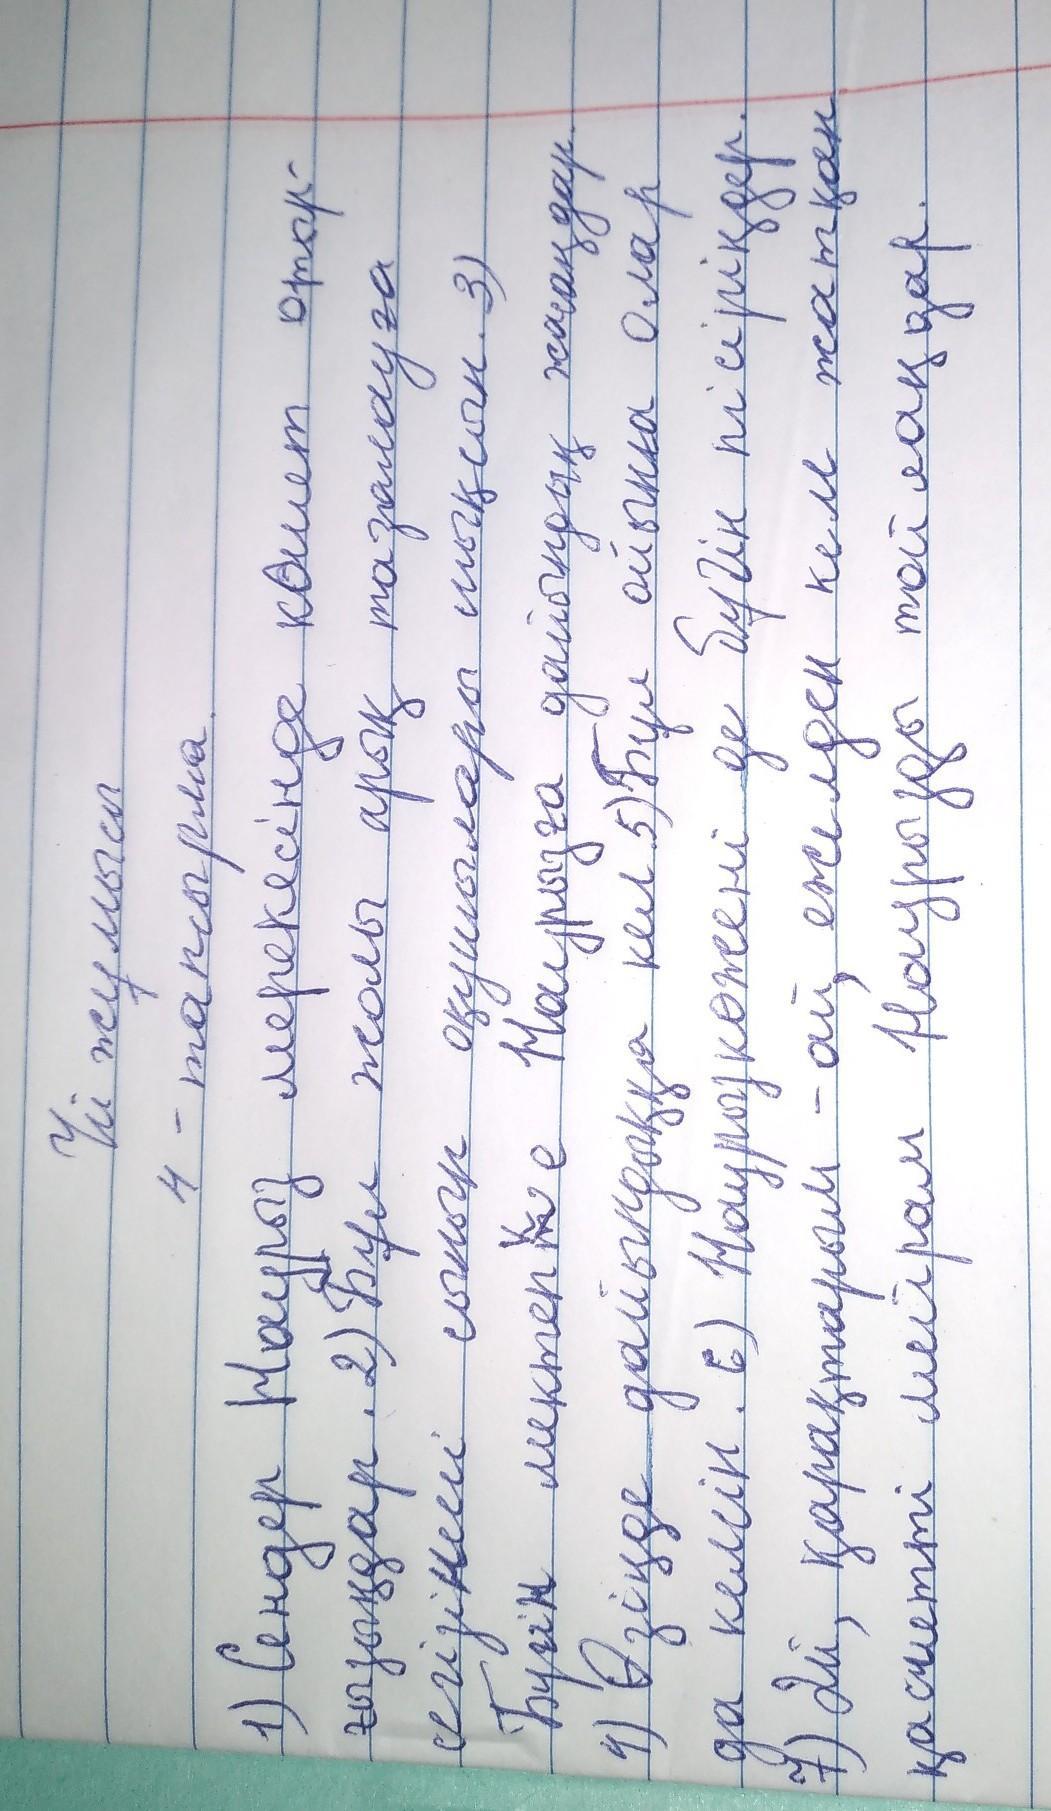 Үй жұмысы
4 - тапсырма.
1) Сендер Наурыз мерекесінде көшет отыр-
ғызыңдар. 2) Бұл жолы арық тазалауға
сегізінші сынып оқушылары шықсын. 3)
Бүгін мектепте Наурызға дайындық жасаңдар.
4) Өзіңде дайындыққа кел. 5) Бұл ойынға олар
да келсін. 6) Наурызкөжені де бүгін пісіріңдер.
7) Әй, қарақтарым - ай, ежелден келе жатқан
қасиетті мейрам Наурызды тойлаңдар.